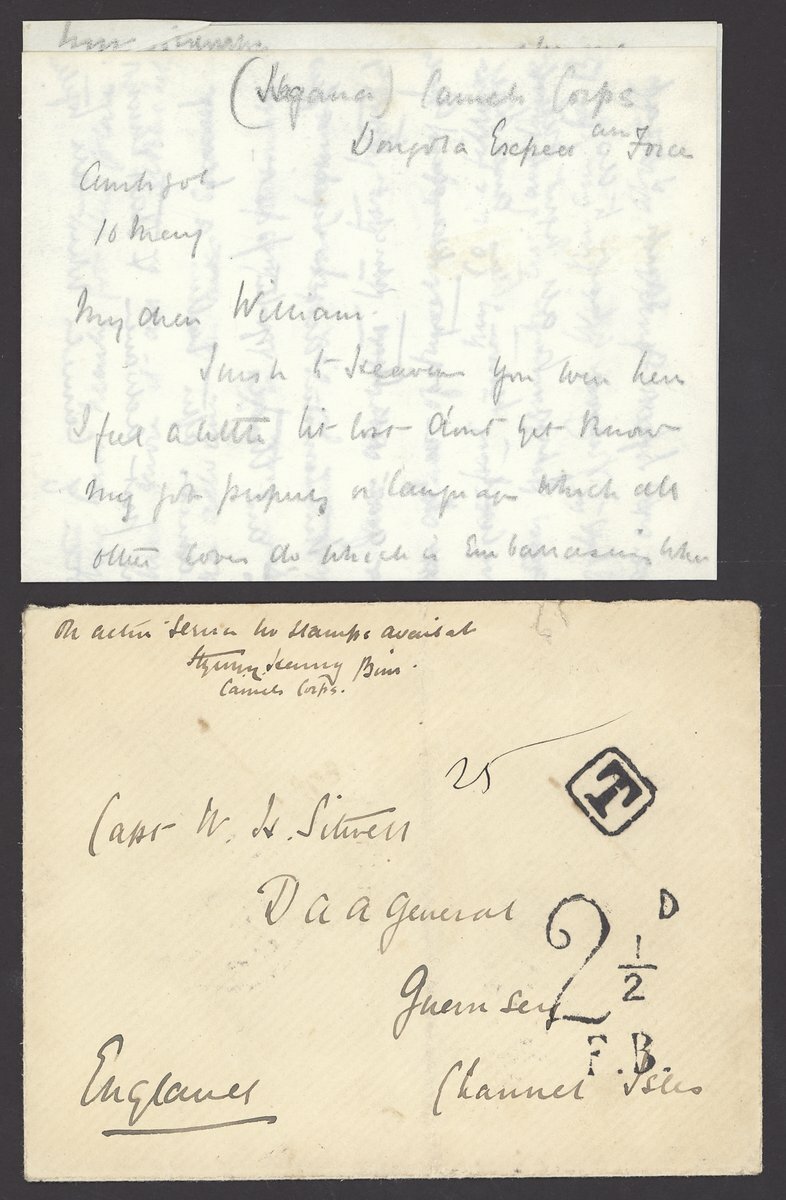 Camels Corps
Dongola Force
Ambigol
10 May
My dear William.
I wish to Heaven you were here
I feel a little bit lost don't get know
my job properly or language which all
other coves do which is embarrassing when
On active service no stamps availab
Henry
Camels Corps.
25
T
Capt W. H. Sitwell
D A A General
Guernsey
Channel Isles
England
2 1/2 D
F.B.